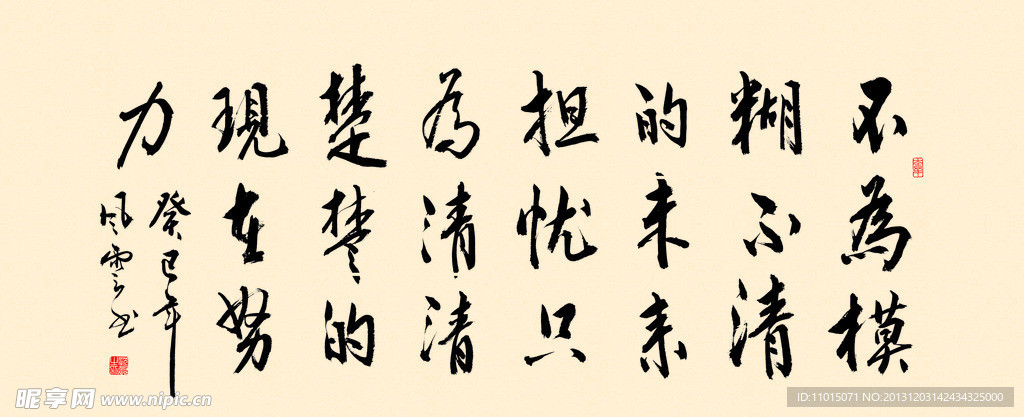 不為模
糊不清
的未来
担忧只
為清清
楚楚的
現在努
力
癸巳年
風雲书
昵享网 www.nipic.cn
ID:11015071 NO:20131203142434325000